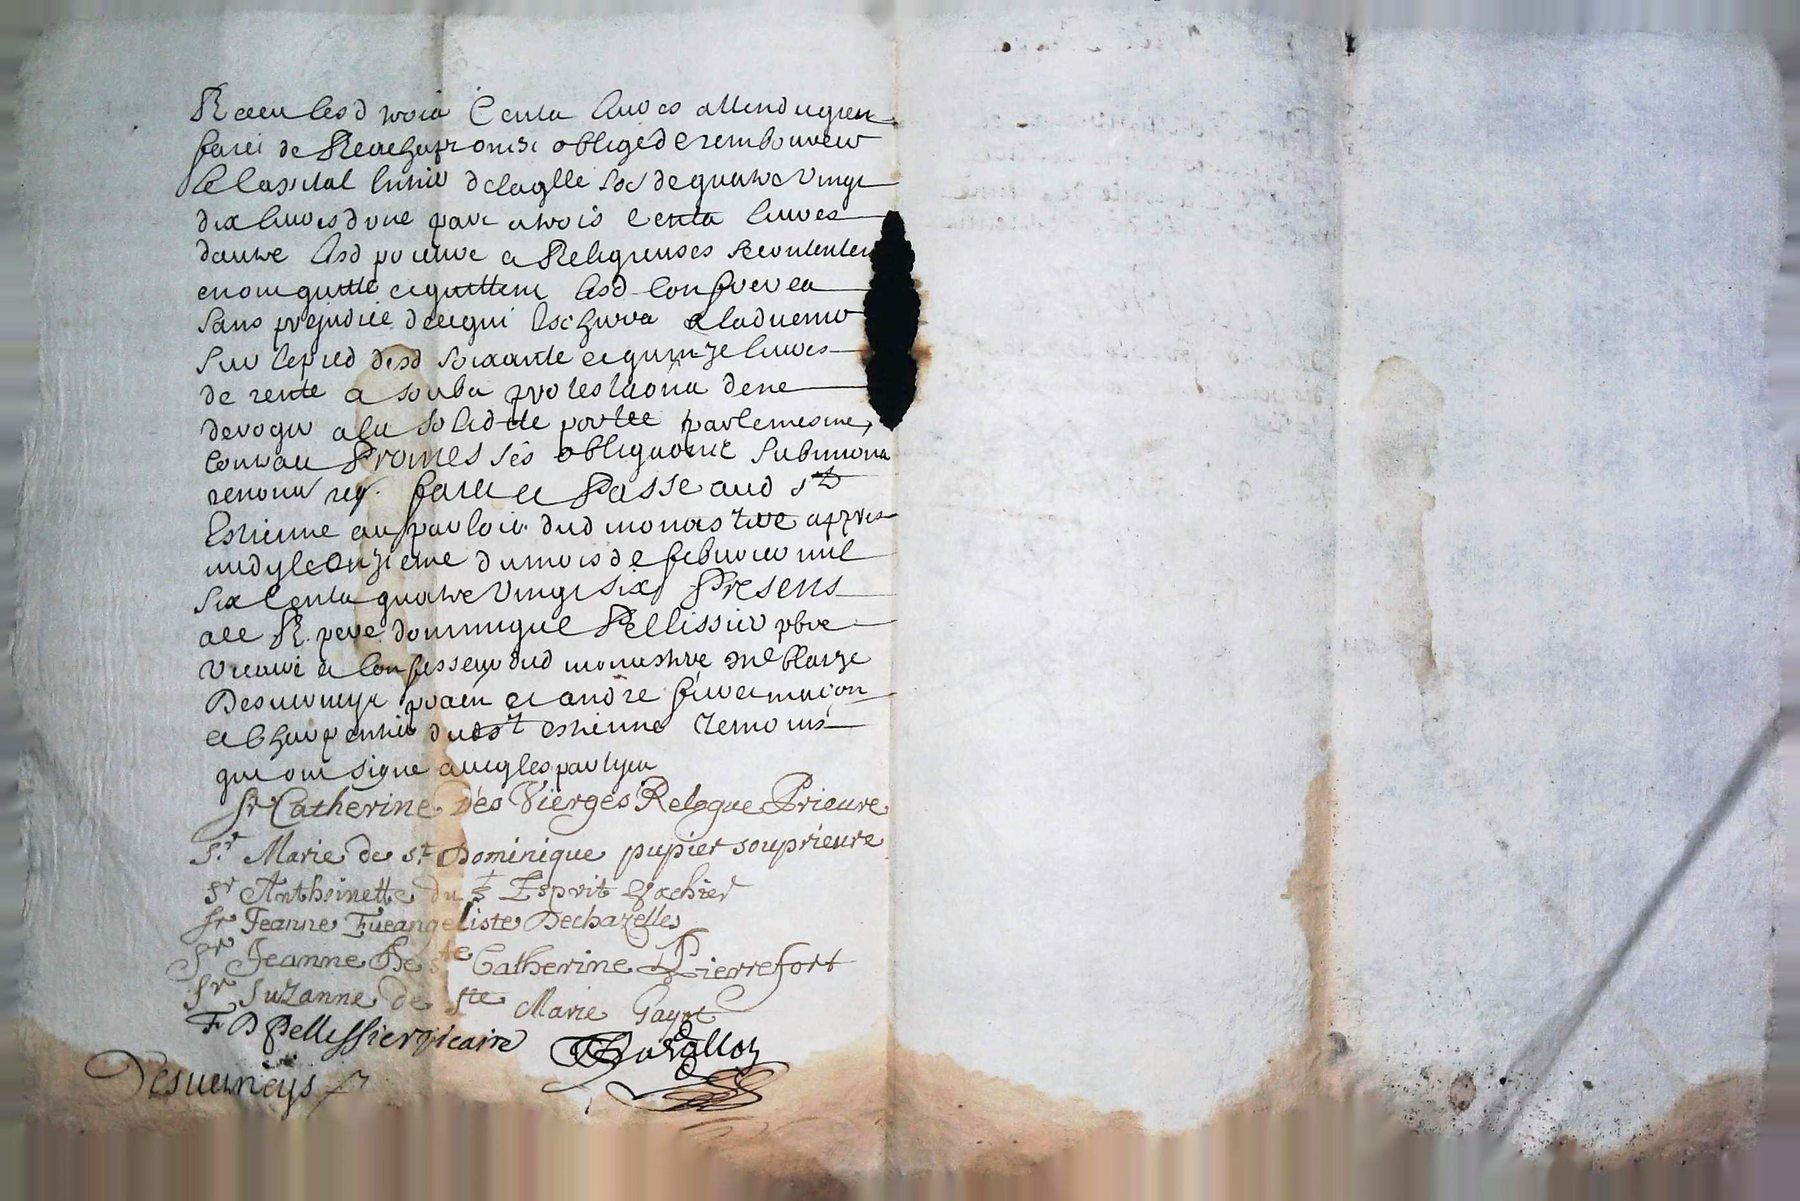 Receu lesd trois Centz livres attendu quen
faict de Reachapt on est obligé de rembourser
le Capital entier de laqlle so͠e de quatre vingt
dix livres dune part a trois Centz livres
dautre lesd prieure & Religieuses se contentent
en ont quitté et quittent lesd
sans prejudice de ce qui Escherra a laduenir
sur le pied desd soixante et quinze livres
de rente & soubz protestaõns de ne
deroger a la solidite portée par le mesme
Contrau Promes Sés obligaõnt Submiõns
renonõ req. faict et Passé aud St
Estienne au parloir dud monastere appres
midy le Onzieme du mois de febvrier mil
Six Centz quatre Vingt six Presens
a ce R. pere dominique Pellissier pbre
Vicaire & Confesseur dud monastere Me blaize
Desverneys praen et andre maçon
et Charpentier dudst estienne Temoins
qui ont signé avecq les parties
Sr Catherine Des Vierges Relogue Prieure
Sr Marie de st Dominique pupier souprieure
Sr Anthoinette du St Esprit Vachier
Sr Jeanne Eueangeliste Dechazelles
Sr Jeanne De Ste Catherine Pierrefort
Sr Suzanne de Ste Marie Gayot
F D Pellissier vicaire
Desuerneys